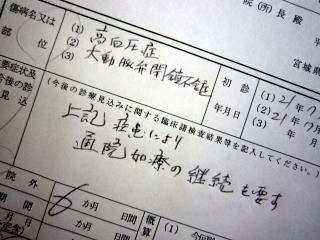 院(所)長 殿 平
宮城県
傷病名又は
部位
(1) 高血圧症
(2) 大動脈弁閉鎖不全
(3)
初診
(1) 21年7
(2) 21年7
(3) 年月日
主要症状及
今後の診療
見込
(今後の診療見込みに関する臨床諸検査結果等を記入してください。)
上記 疾患により
通院加療の継続を要す
院外
6か月 日間
か月 日間
概算
(1) 今回